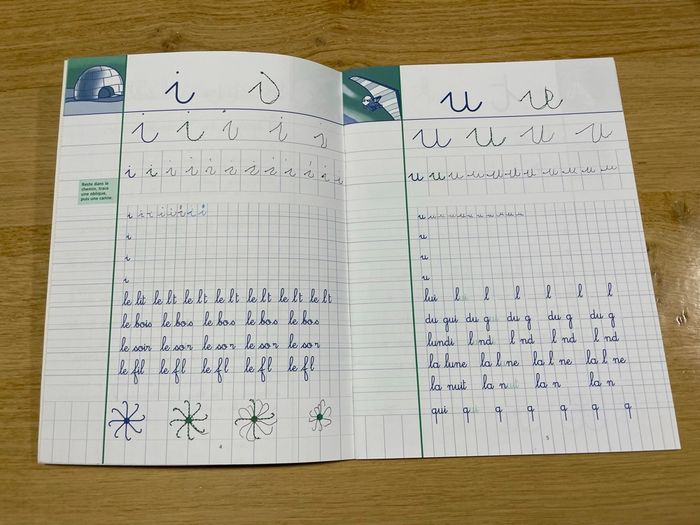 i i
i i i i i
i i i i i i i i i i i i
Reste dans le
chemin, trace
une oblique,
puis une canne.
i i i i i i i i
i
i
i
le lit le l t le l t le l t le l t le l t le l t
le bois le bo s le bo s le bo s le bo s
le soir le so r le so r le so r le so r
le fil le f l le f l le f l le f l
4
u u
u u u u
u u u u u u u u u u u
u u u u u u u u u u u
u
u
u
lui l l l l l l
du gui du g du g du g du g
lundi l nd l nd l nd l nd
la lune la l ne la l ne la l ne
la nuit la n la n la n
qui q q q q q q
5